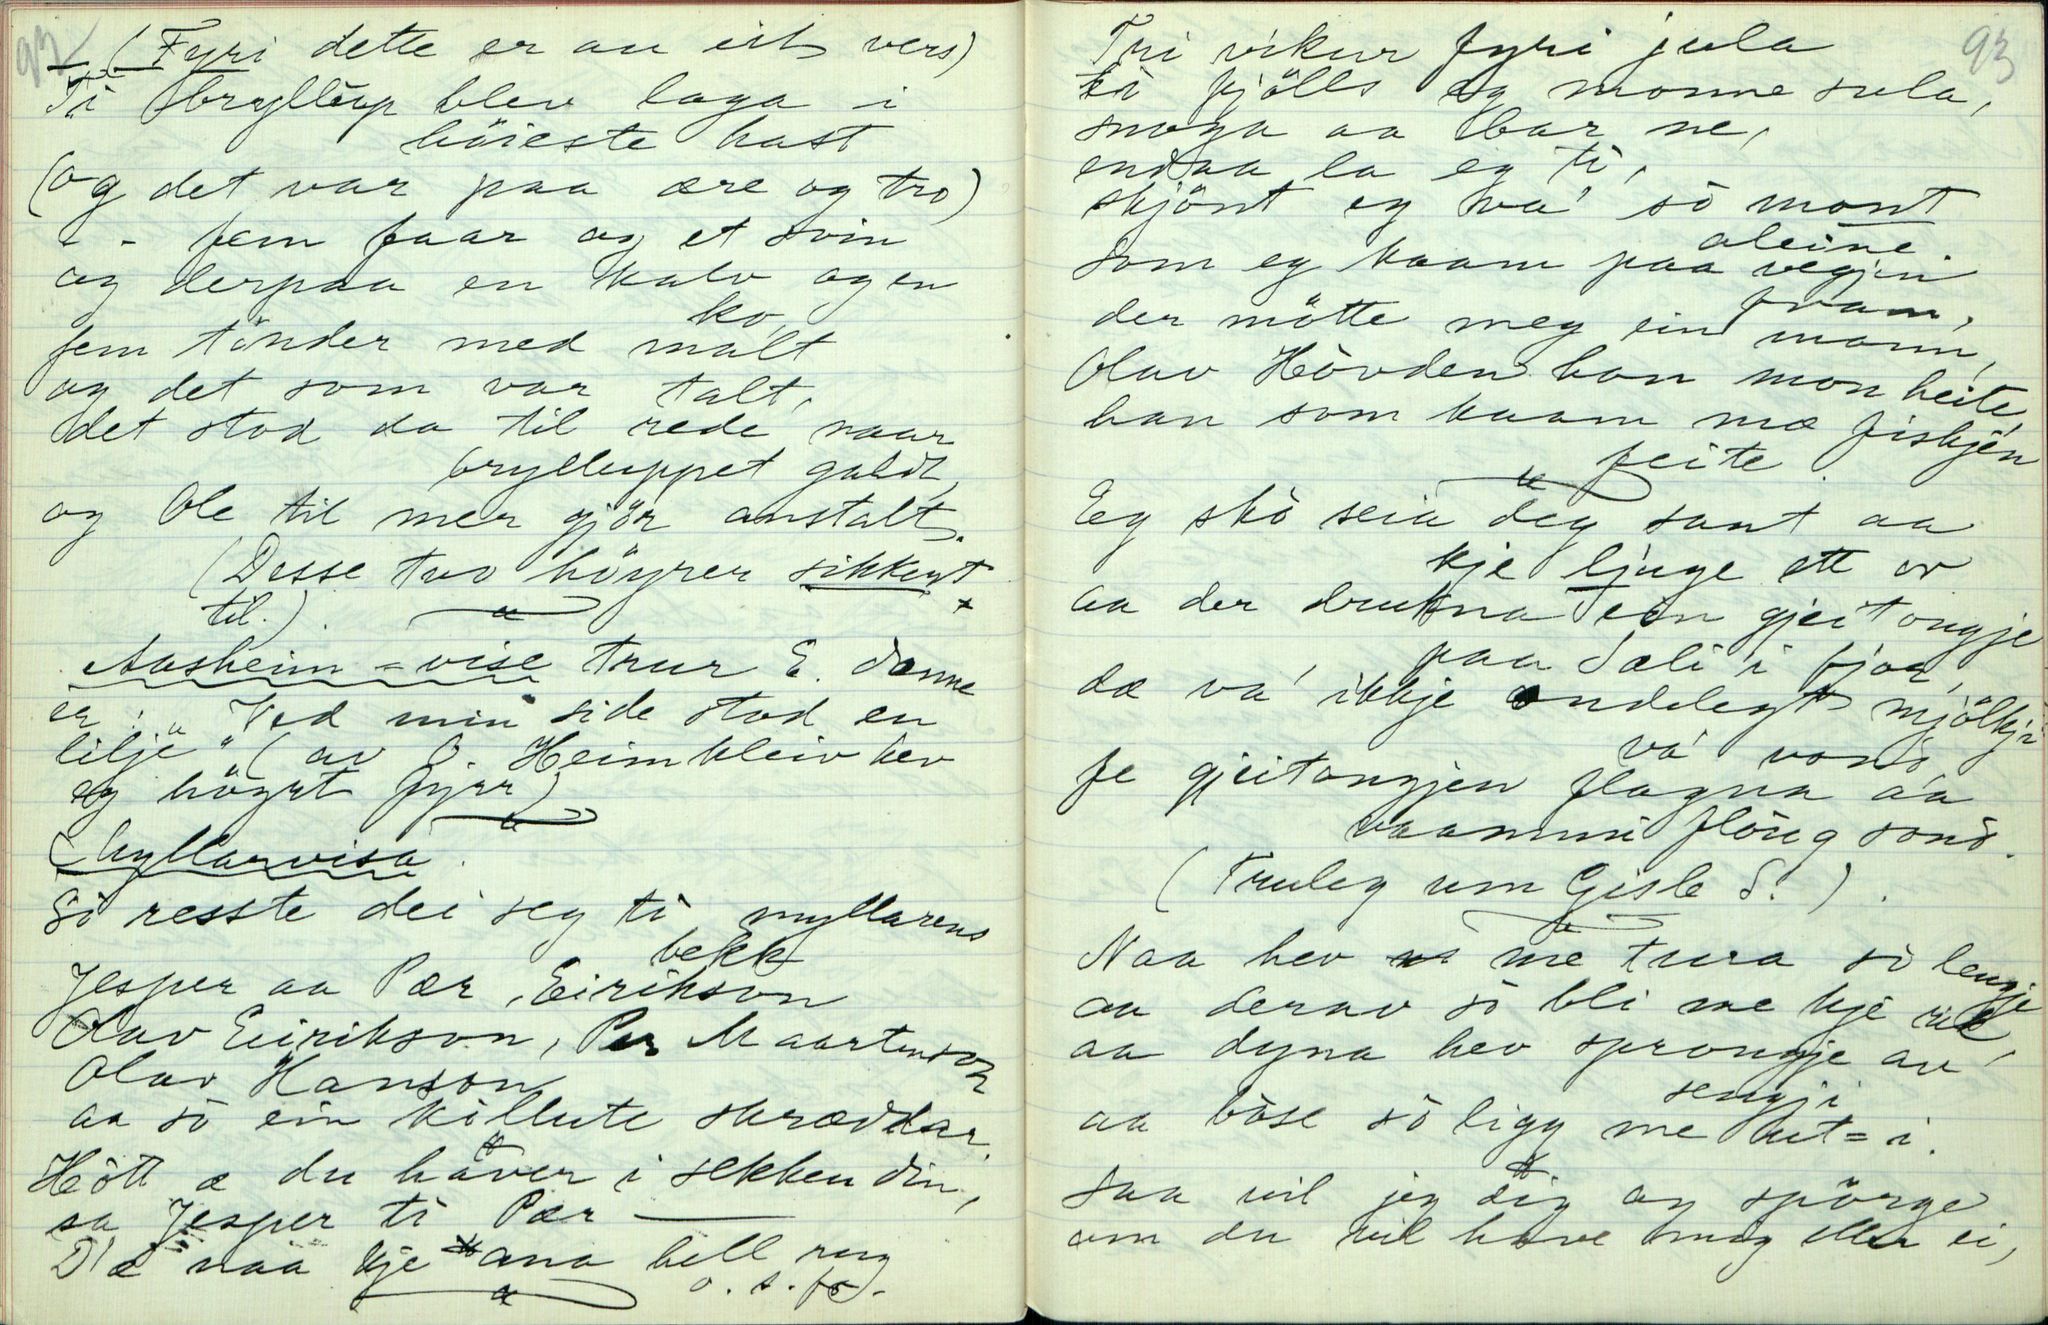 92
(Fyri dette er au eit vers)
Ti bryllup blev laga i
höieste hast
(og det var paa ære og tro)
- - fem faar og et svin
og derpaa en kalv og en
ko,
fem tönder med malt
og det som var talt,
det stod da til rede naar
brylluppet galdt,
og Ole til mer gjör anstalt.
(Desse tvo höyrer sikkert
til.)
Aasheim-vise trur E. denne
er: "Ved min side stod en
lilje" (av O. Heimkleiv hev
eg höyrt fyrr)
Myllarvisa.
Sò resste dei seg ti myllarens
bekk
Jesper aa Pær, Eirikson
Olav Eirikson, Per Maartenson
Olav Hanson
aa sò ein kòllute skræddar.
Hòtt æ du hăver i sekken din,
sa Jesper ti Pær —
D'æ naa kje ana hell rug
o. s. fr.
93
Tri vikur fyri jula
tå fjölls eg monne sula,
snoga aa bar ne,
endaa la eg ti,
skjönt eg va' sò mont
aleine
Som eg kaam paa vegjin
fram,
der mötte meg ein mann,
Olav Hövden han mon heite,
han som kaam mæ fiskjen
feite.
Eg skò seia deg sant aa
kje ljuge ett or
aa der drukna ein gjeitongje
paa Sæli i fjor,
dæ va' ikkje ondelegt mjölkji
va' vond,
fe gjeitongjen flagna aa
vaammi flöug sond.
(Truleg um Gisle S.)
Naa hev me tura sò lengje
aa derav sò bli me kje rik,
aa dyna hev sprongje av
sengji
aa bòse sò ligg me ut-i.
Saa vil jeg dig og spörge
om du vil have mig eller ei,